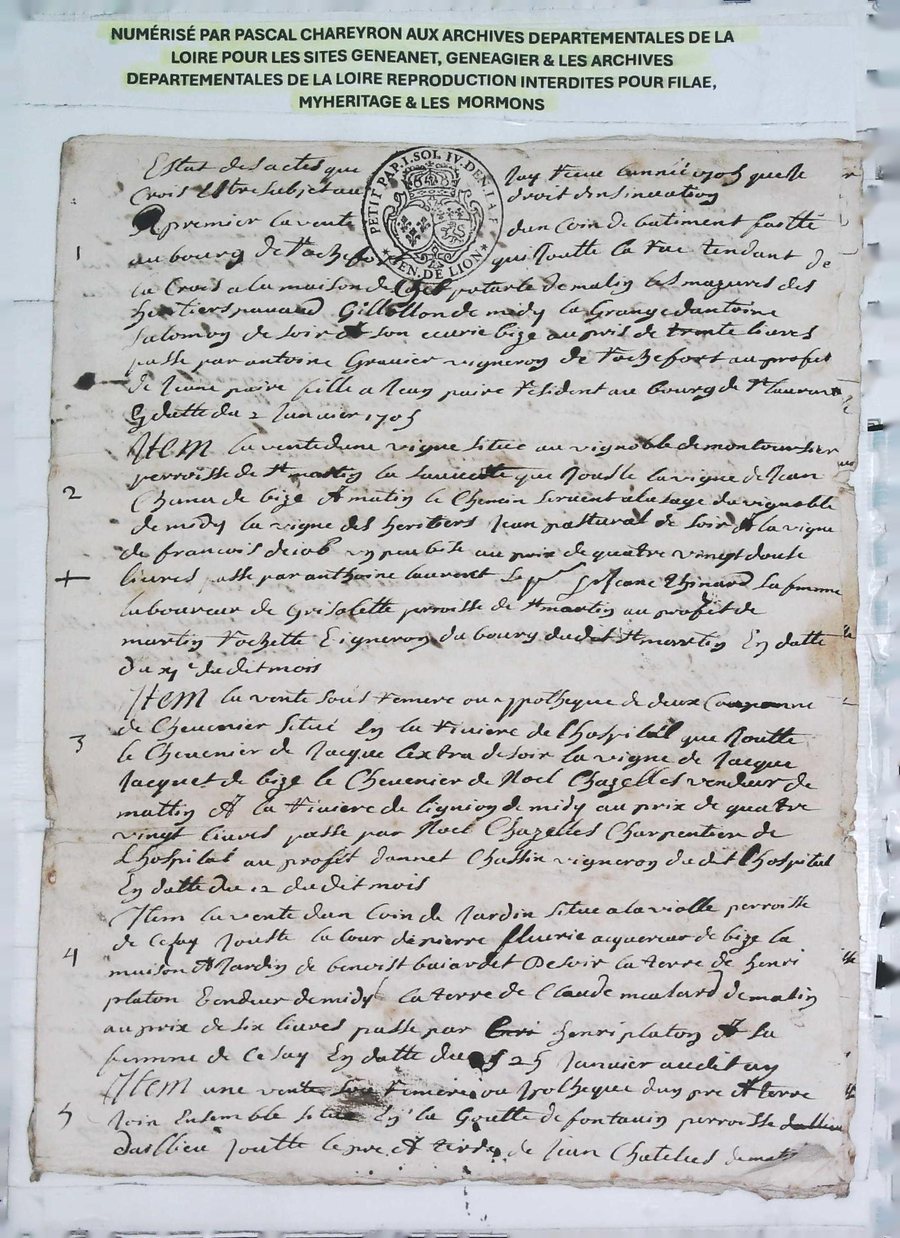 NUMÉRISÉ PAR PASCAL CHAREYRON AUX ARCHIVES DEPARTEMENTALES DE LA
LOIRE POUR LES SITES GENEANET, GENEAGIER & LES ARCHIVES
DEPARTEMENTALES DE LA LOIRE REPRODUCTION INTERDITES POUR FILAE,
MYHERITAGE & LES MORMONS
PETIT PAP. I. SOL IV. DEN. LA F
GEN. DE LION
Estat des actes que Jay Receu lannee 1705 que Je
Crois Estre subjet au droit dinsinuation
1
premier la vente dun Coin de batiment
au bourg de Rochefort qui Joutte la rue tendant de
la Crois a la maison de de matin les mazures des
heritiers Gillollon de midy la Grange dantoine
Salomon de soir & son bize au pris de trente livres
passe par antoine Granier vigneron de Rochefort au profit
de Jeane paire fille a Jean paire Résident au bourg de St laurant
En datte du 2 Janvier 1705
Item la vente dune vigne situe au vignoble de
2
perroisse de St martin la sauveté que Jouste la vigne de Jean
de bize & matin le Chemin servent a lusage du vignoble
de midy la vigne des heritiers Jean pastural de soir & la vigne
de francois au prix de quatre vingt douse
+
livres passe par anthoine sa femme
laboureur de Grisolette perroisse de St martin au profit de
martin Rochette Vigneron du bourg dudit St martin En datte
du dudit mois
Item la vente sous Remere ou yppotheque de deux
3
de Chevenier situé En la Riviere de lhospital que Joutte
le Chevenier de Jacque de soir la vigne de Jacque
Jacquet de bize le Chevenier de Noel Chazelles vendeur de
mattin & la Riviere de lignion de midy au prix de quatre
vingt livres passe par Noel Chazelles Charpentier de
Lhospital au profit dannet Chassin vigneron dudit lhospital
En datte du 12 dudit mois
Item la vente dun Coin de Jardin situe a la violle perroisse
4
de Cesay Jouste la Cour de pierre fleurie acquereur de bize la
maison & Jardin de benoist De soir la terre de henri
platon Vendeur de midy la terre de Claude moulard de matin
au prix de six livres passe par henri platon & sa
femme de Cesay En datte du 25 Janvier audit an
Item une vente sou Remere ou Ipotheque dun pre & terre
5
Join Ensemble situe En la Goutte de fontauin perroisse
dailleu Joutte le pre & terre de Jean Chatelus de matin